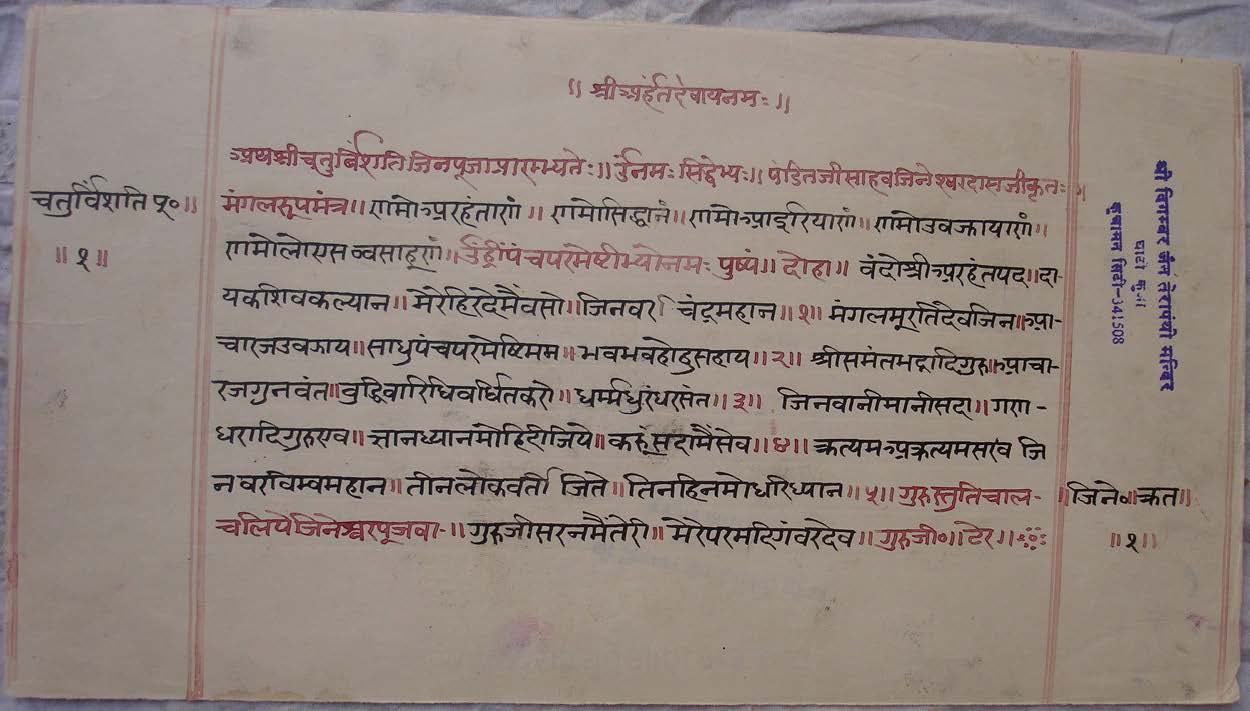 ॥ श्रीअर्हंतदेवायनमः ॥
अथश्रीचतुर्विंशतिजिनपूजाप्रारम्भ्यतेः ॥ ॐनमः सिद्धेभ्यः ॥ पंडितजीसाहवजिनेश्वरदासजीकृतः ॥
चतुर्विंशति पू० ॥
॥ १ ॥
मंगलरूपमंत्र ॥ णमोअरहंताणं ॥ णमोसिद्धानं ॥ णमोआइरियाणं ॥ णमोउवज्झायाणं ॥
णमोलोएसव्वसाहूणं ॥ ॐह्रींपंचपरमेष्टीभ्योनमः पुष्पं ॥ दोहा ॥ वंदोश्रीअरहंतपद ॥ दा-
यकशिवकल्यान ॥ मेरेहिरदेमैंवसो ॥ जिनवर चंद्रमहान ॥ १ ॥ मंगलमूरतिदेवजिन ॥ आ-
चारजउवझाय ॥ साधुपंचपरमेष्टिमम ॥ भवभवहोहुसहाय ॥ २ ॥ श्रीसमंतभद्रादिगुरु ॥ आचा-
रजगुनवंत ॥ वुद्धिवारिधिवर्धितकरो ॥ धर्म्मधुरंधरसंत ॥ ३ ॥ जिनवानीमानीसदा ॥ गण-
धरादिगुरुएव ॥ ज्ञानध्यानमोहिदीजिये ॥ करूंसदामैंसेव ॥ ४ ॥ क्रत्यमअक्रत्यमसरव जि
नवरविम्वमहान ॥ तीनलोकवर्ती जिते ॥ तिनहिनमोधरिध्यान ॥ ५ ॥ गुरुस्तुतिचाल-
चलियेजिनेश्वरपूजवा- ॥ गुरुजीसरनमैंतेरी ॥ मेरेपरमदिगंवरदेव ॥ गुरुजी० ॥ टेर ॥
॥ जिने० क्रत ॥
॥ १ ॥
श्री दिगम्बर जैन तेरापंथी मन्दिर
कुचामन सिटी-341508